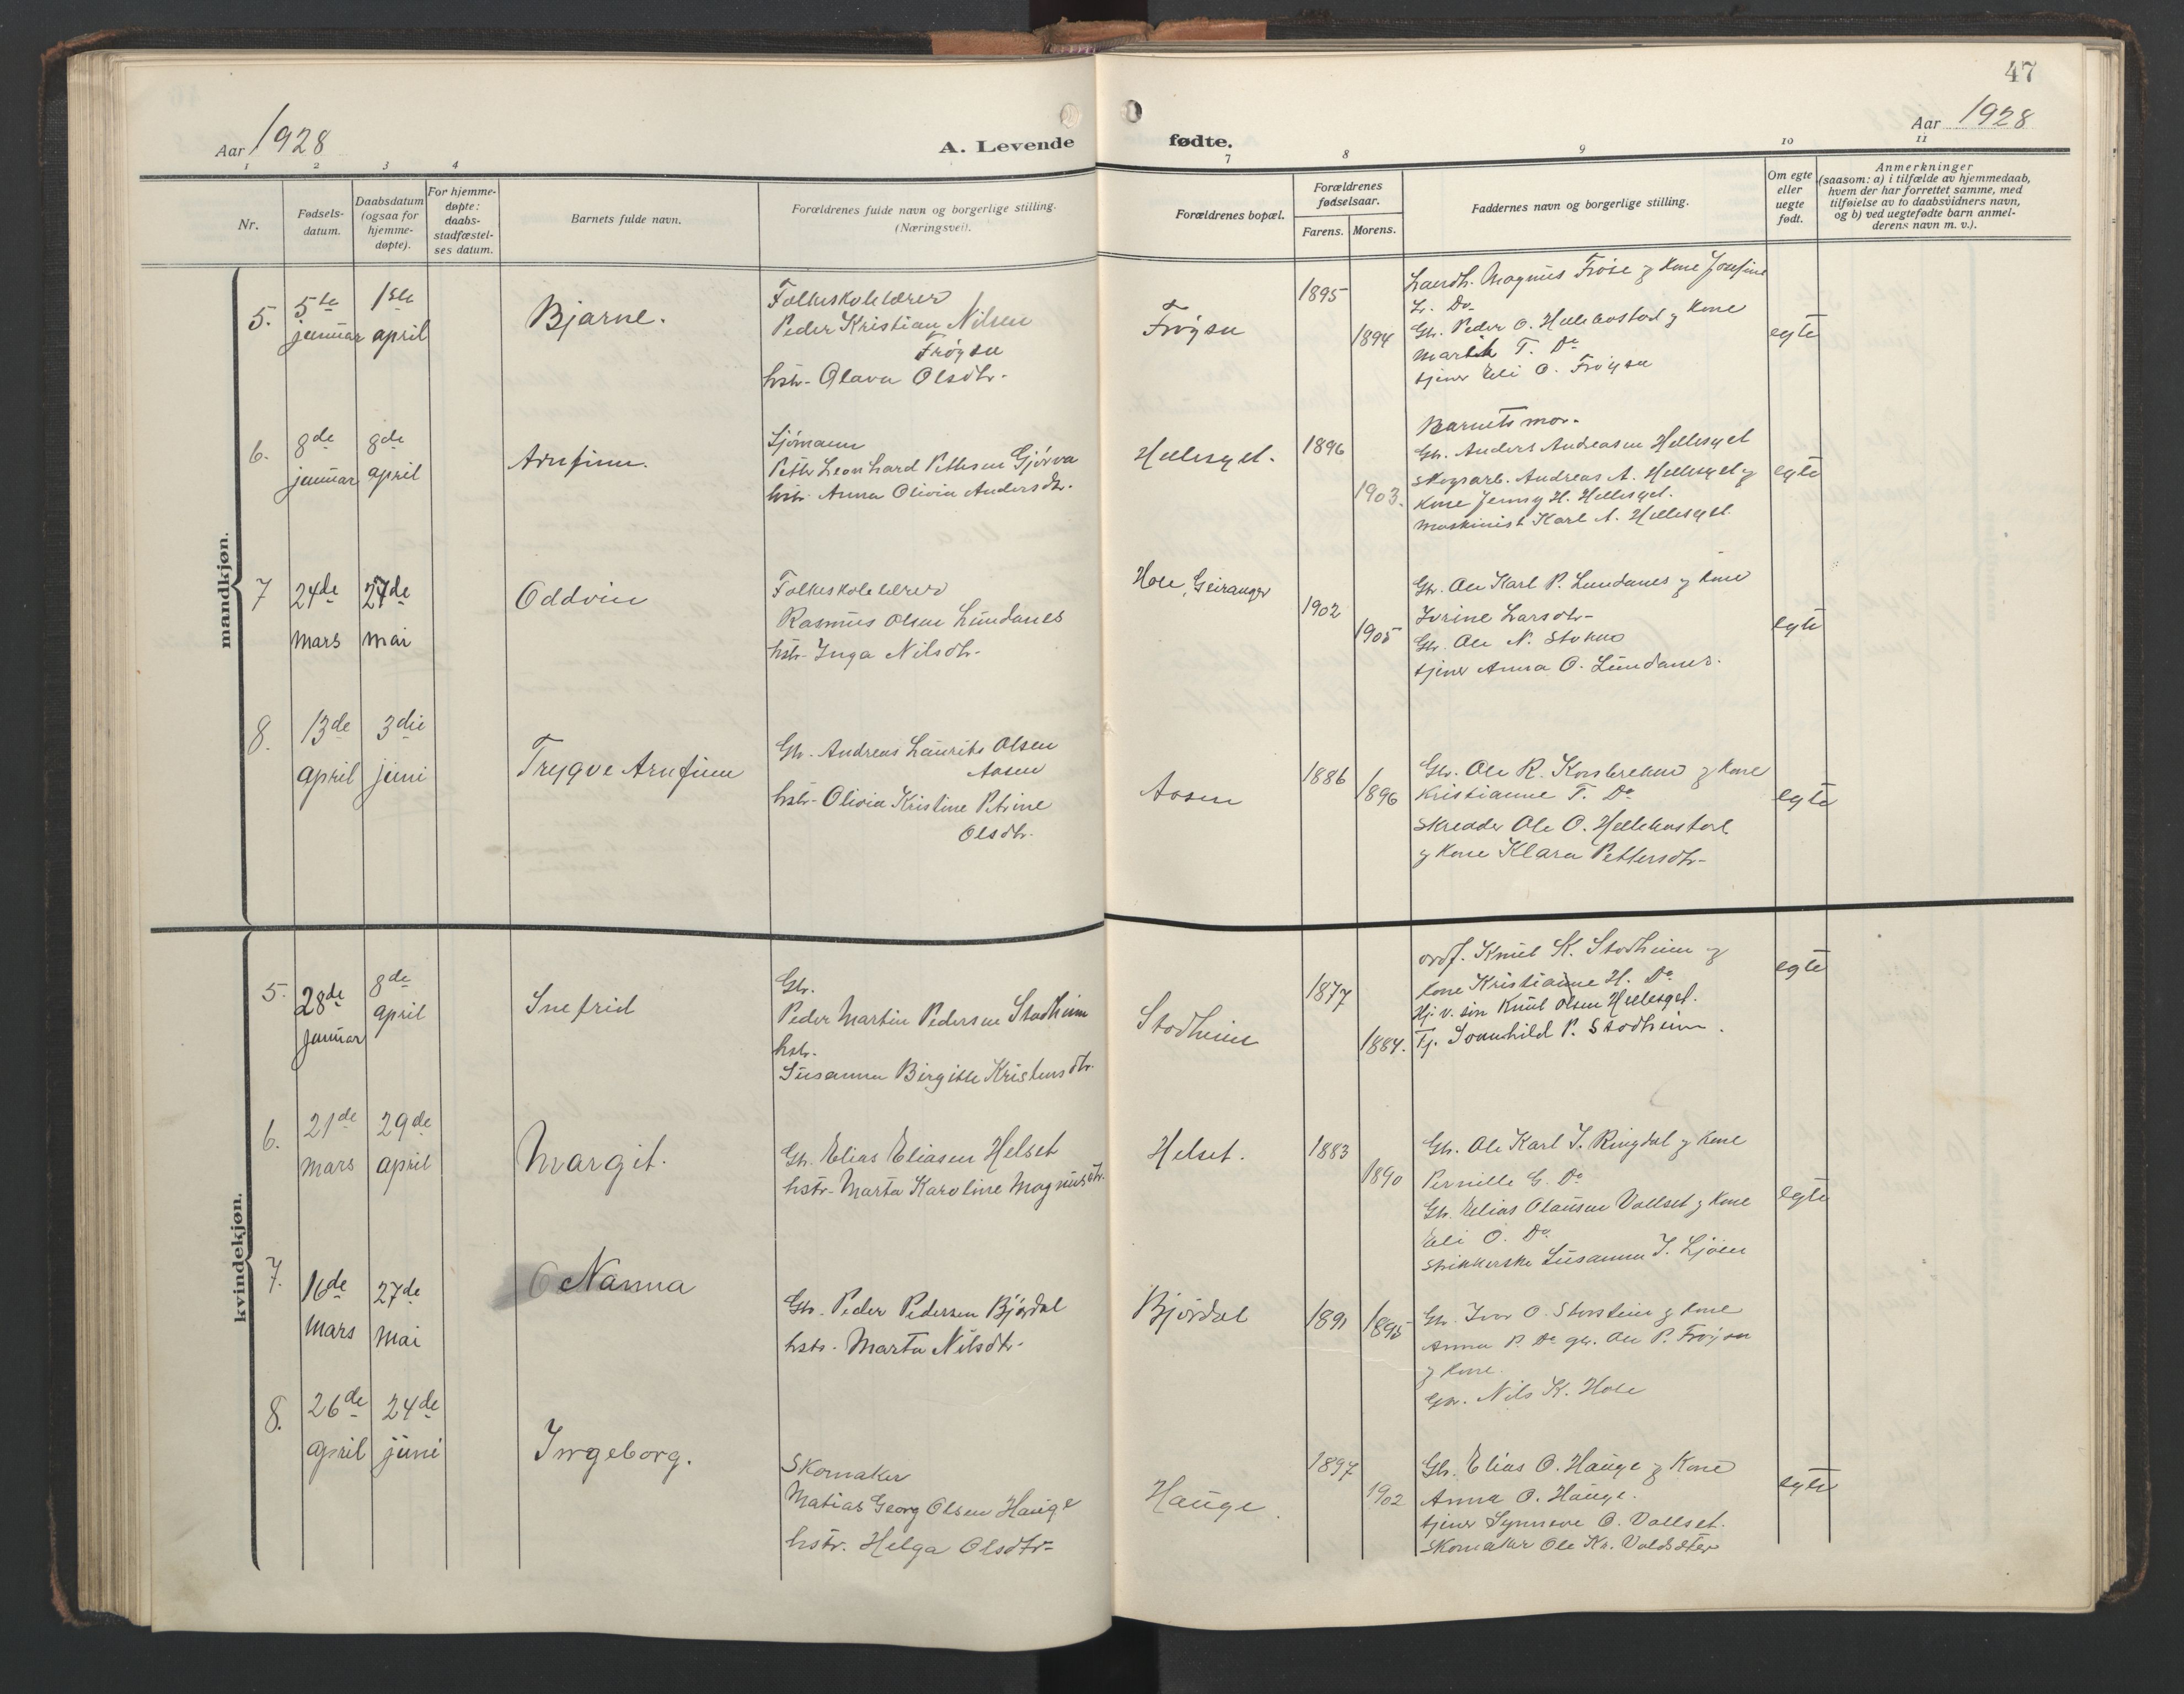 47
Aar 1928
A. Levende
fødte.
Aar 1928
1 2 3 4
7 8 9 10 11
Nr.
Fødsels-
datum.
Daabsdatum
(ogsaa for
hjemme-
døpte).
For hjemme-
døpte:
daabs-
stadfæstel-
ses datum.
Barnets fulde navn.
Forældrenes fulde navn og borgerlige stilling.
(Næringsvei).
Forældrenes bopæl.
Forældrenes
fødselsaar.
Farens. Morens.
Faddernes navn og borgerlige stilling.
Om egte
eller
uegte
født.
Anmerkninger
(saasom: a) i tilfælde av hjemmedaab,
hvem der har forrettet samme, med
tilføielse av to daabsvidners navn,
og b) ved uegtefødte barn anmel-
derens navn m. v.).
mandkjøn.
5.
5te
januar
1ste
april
Bjarne.
Folkeskolelærer
Peder Kristian Nilsen
Frøysa
hstr. Olava Olsdtr.
Frøysa
1895
1894
Landh. Magnus Frøise og kone Josefine
L. Do
Gbr. Peder O. Hellebostad og kone
T. Do
tjener Eli O. Frøysa
egte
6.
8de
januar
8de
april
Arnfinn.
Sjømann
Petter Leonhard Pettersen Gjørva
hstr. Anna Olivia Andersdtr.
Hellesylt.
1896
1903.
Barnets mor.
Gbr. Anders Andreasen Hellesylt
Skogsarb. Andreas A. Hellesylt og
kone Jenny H. Hellesylt.
maskinist Karl A. Hellesylt.
egte
7
24de
mars
27de
mai
Oddvin
Folkeskolelærer
Rasmus Olsen Lundanes
hstr. Inga Nilsdtr.
Hole, Geiranger
1902
1905
Gbr. Ole Karl P. Lundanes og kone
Ivrine Larsdtr.
Gbr. Ole N.
tjener Anna O. Lundanes.
egte
8.
13de
april
3die
juni
Trygve Arnfinn
Gbr. Andreas Laurits Olsen
Aasen
hstr. Olivia Kristine Petrine
Olsdtr.
Aasen
1886
1896
Gbr. Ole R. Korsbrekke og kone
Kristianne T. Do
Skredder Ole O. Hellebostad
og kone Klara Pettersdtr.
egte
kvindekjøn.
5.
28de
januar
8de
april
Snefrid
Gbr.
Peder Martin Pedersen Stadheim
hstr.
Susanna Birgitte Kristensdtr.
Stadheim
1877
1884.
ordf. Knut K. Stadheim og
kone Kristianne H. Do
Hj. v. søn Knut Olsen Hellesylt.
Tj. P. Stadheim.
egte
6.
21de
mars
29de
april
Margit.
Gbr. Elias Eliasen Helset
hstr. Marta Karoline Magnusdtr.
Helset.
1883
1890
Gbr. Ole Karl I. Ringdal og kone
Pernille G. Do
Gbr. Elias Olausen Vollset og kone
Eli O. Do
strikkerske Susanna I. Ljøen
egte
7.
16de
mars
27de
mai
Nanna
Gbr. Peder Pedersen Bjørdal
hstr. Marta Nilsdtr.
Bjørdal
1891
1895
Gbr. Iver O. Storstein og kone
Anna P. Do gbr. Ole P. Frøysa
og kone.
Gbr. Nils K. Hole
8.
26de
april
24de
juni
Ingeborg.
Skomaker
Matias Georg Olsen Hauge
hstr. Helga Olsdtr.
Hauge.
1897
1902
Gbr. Elias O. Hauge og kone
Anna O. Hauge.
tjener Synneve O. Vollset.
Skomaker Ole Kr. Voldsæter
egte